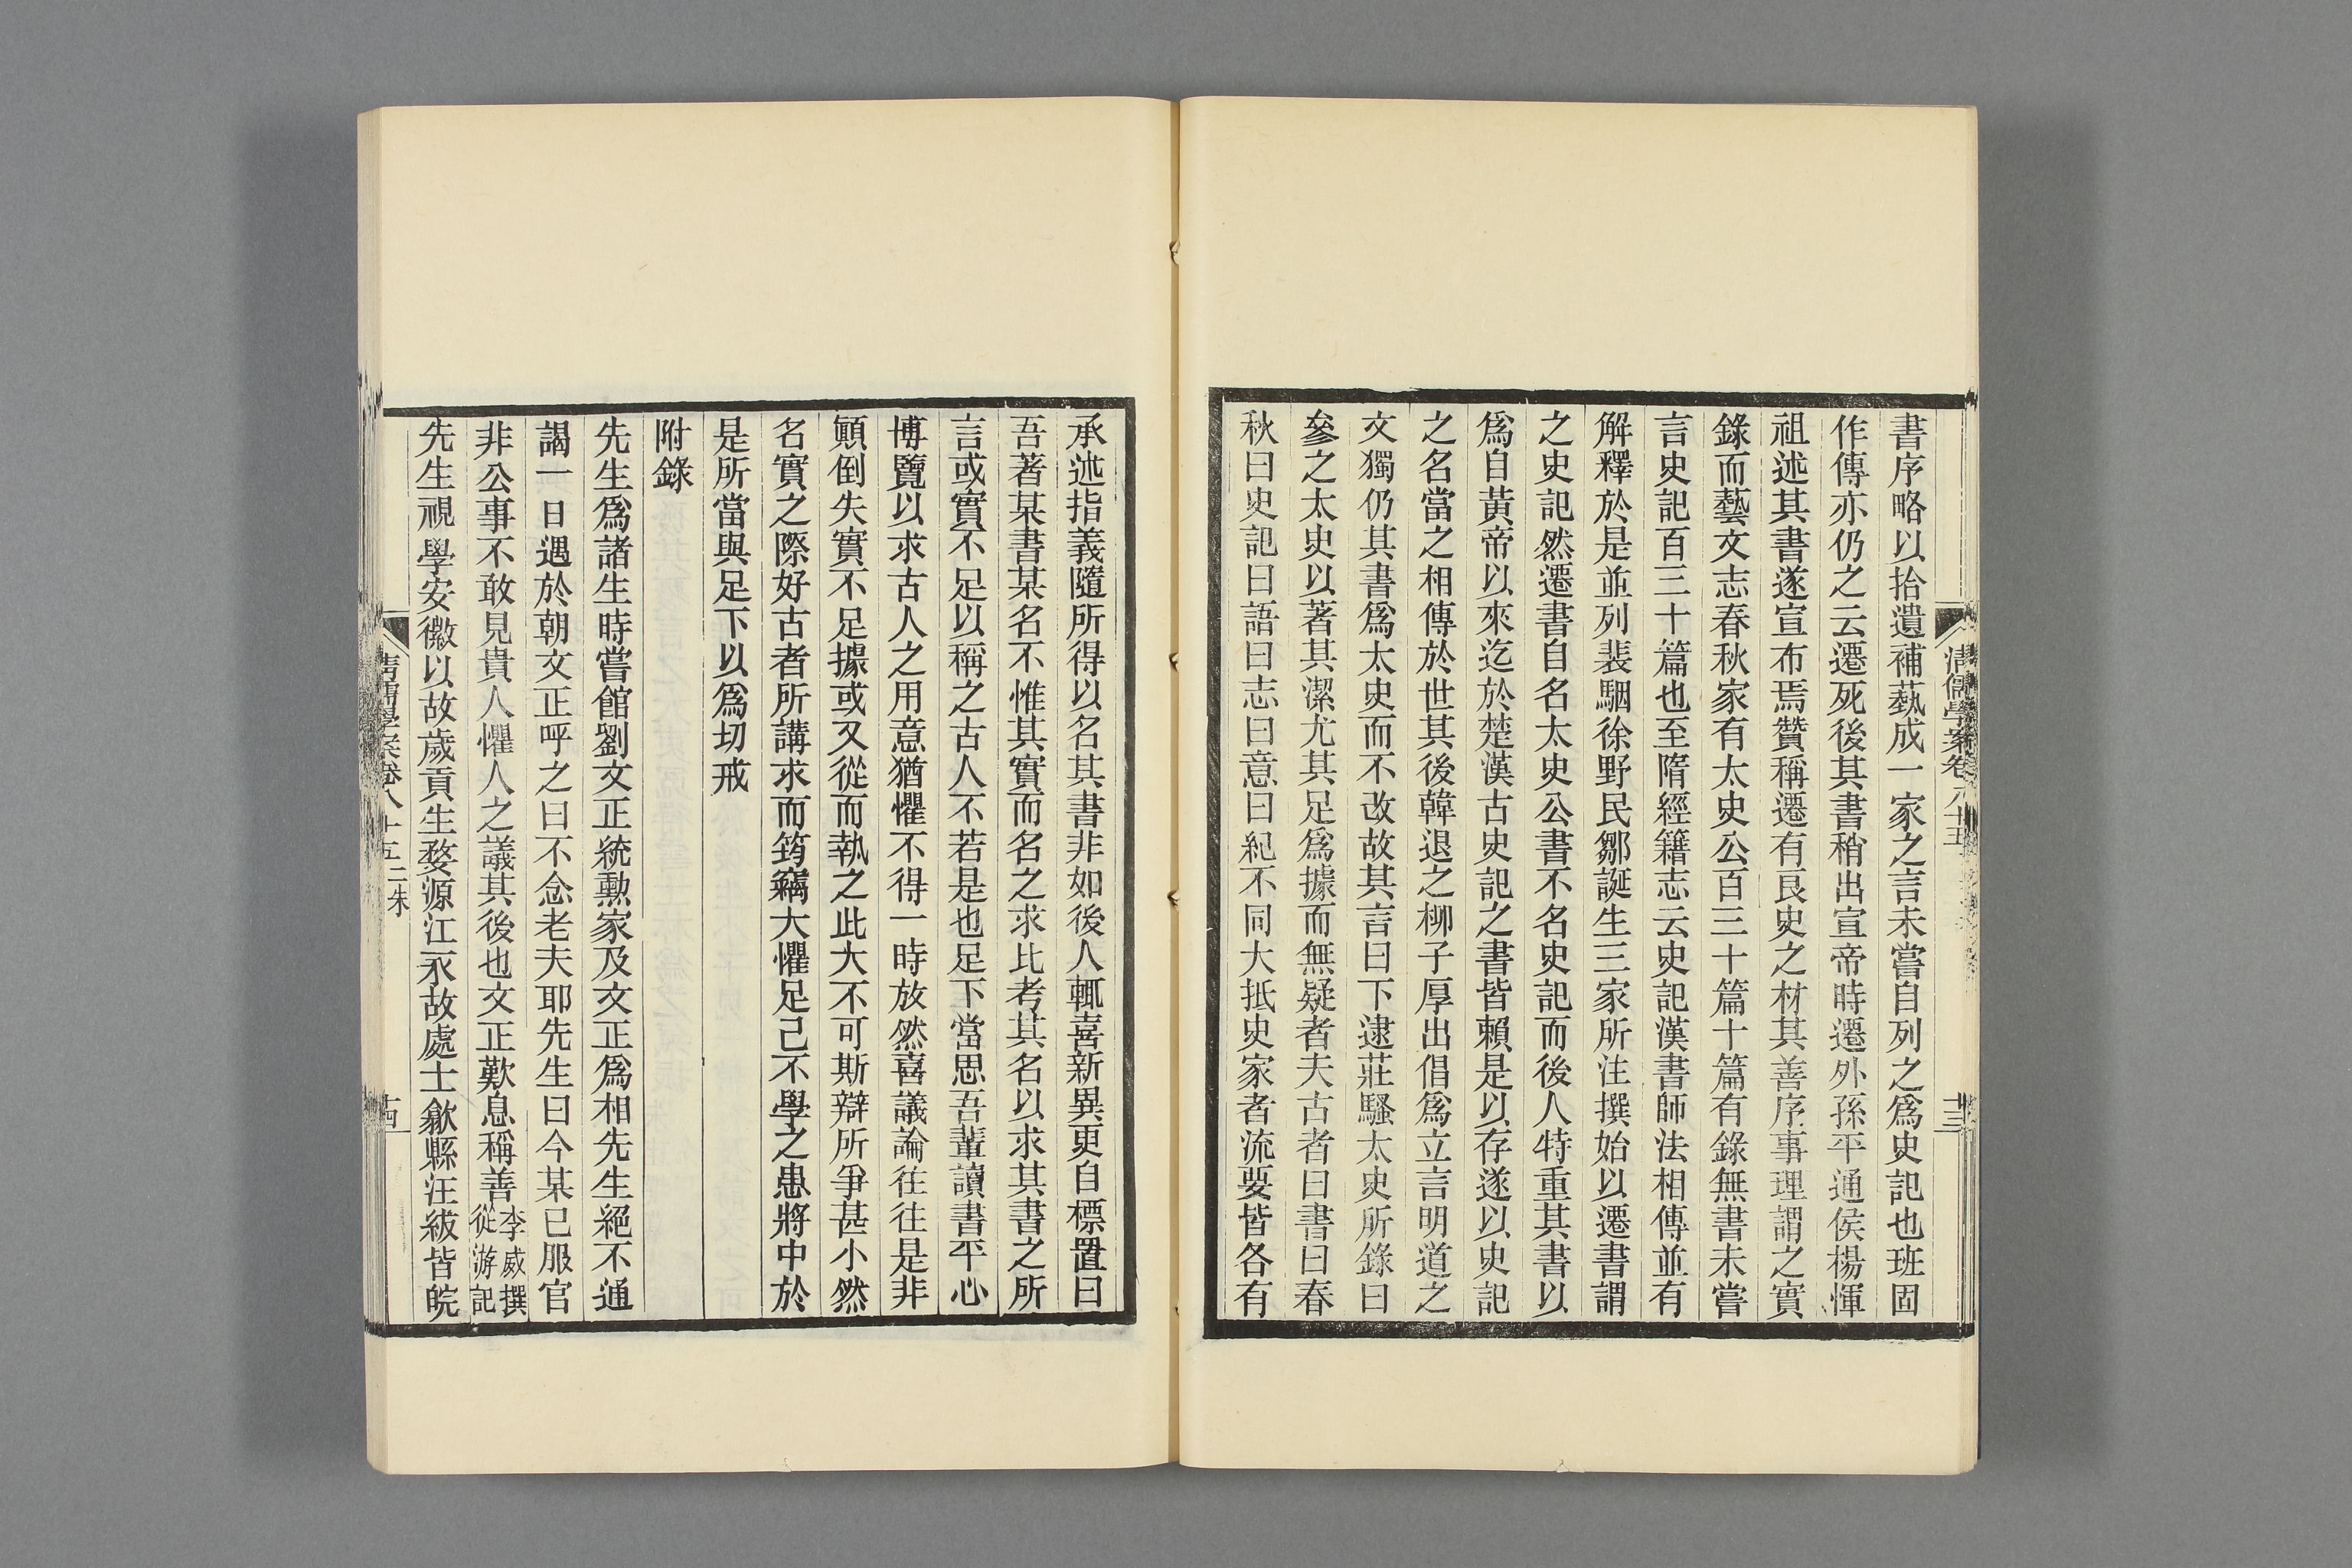 清儒學案卷八十五
十三
書序略以拾遺補蓺成一家之言未嘗自列之爲史記也班固
作傳亦仍之云遷死後其書稍出宣帝時遷外孫平通侯楊惲
祖述其書遂宣布焉贊稱遷有良史之材其善序事理謂之實
錄而藝文志春秋家有太史公百三十篇十篇有錄無書未嘗
言史記百三十篇也至隋經籍志云史記漢書師法相傳並有
解釋於是並列裴駰徐野民鄒誕生三家所注撰始以遷書謂
之史記然遷書自名太史公書不名史記而後人特重其書以
爲自黃帝以來迄於楚漢古史記之書皆賴是以存遂以史記
之名當之相傳於世其後韓退之柳子厚出倡爲立言明道之
文獨仍其書爲太史而不改故其言曰下逮莊騷太史所錄曰
參之太史以著其潔尤其足爲據而無疑者夫古者曰書曰春
秋曰史記曰語曰志曰意曰紀不同大抵史家者流要皆各有
承述指義隨所得以名其書非如後人輒喜新異更自標置曰
吾著某書某名不惟其實而名之求比考其名以求其書之所
言或實不足以稱之古人不若是也足下當思吾輩讀書平心
博覽以求古人之用意猶懼不得一時放然喜議論往往是非
顛倒失實不足據或又從而執之此大不可斯辯所爭甚小然
名實之際好古者所講求而筠竊大懼足己不學之患將中於
是所當與足下以爲切戒
附錄
先生爲諸生時嘗館劉文正統勳家及文正爲相先生絕不通
謁一日遇於朝文正呼之曰不念老夫耶先生曰今某已服官
非公事不敢見貴人懼人之議其後也文正歎息稱善李威撰從游記
先生視學安徽以故歲貢生婺源江永故處士歙縣汪紱皆皖
清儒學案卷八十五 二朱
十四